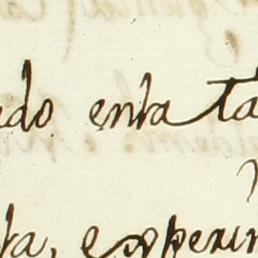 ado enta ta
ta, experim